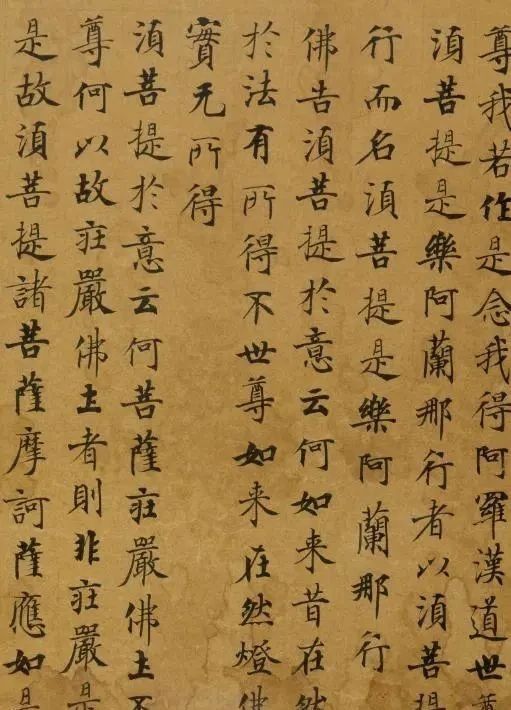 尊我若作是念我得阿羅漢道世尊
湏菩提是樂阿蘭那行者以湏菩提
行而名湏菩提是樂阿蘭那行
佛告湏菩提於意云何如来昔在然
於法有所得不世尊如来在然燈佛
實无所得
湏菩提於意云何菩薩莊嚴佛土不
尊何以故莊嚴佛土者則非莊嚴是
是故湏菩提諸菩薩摩訶薩應如是